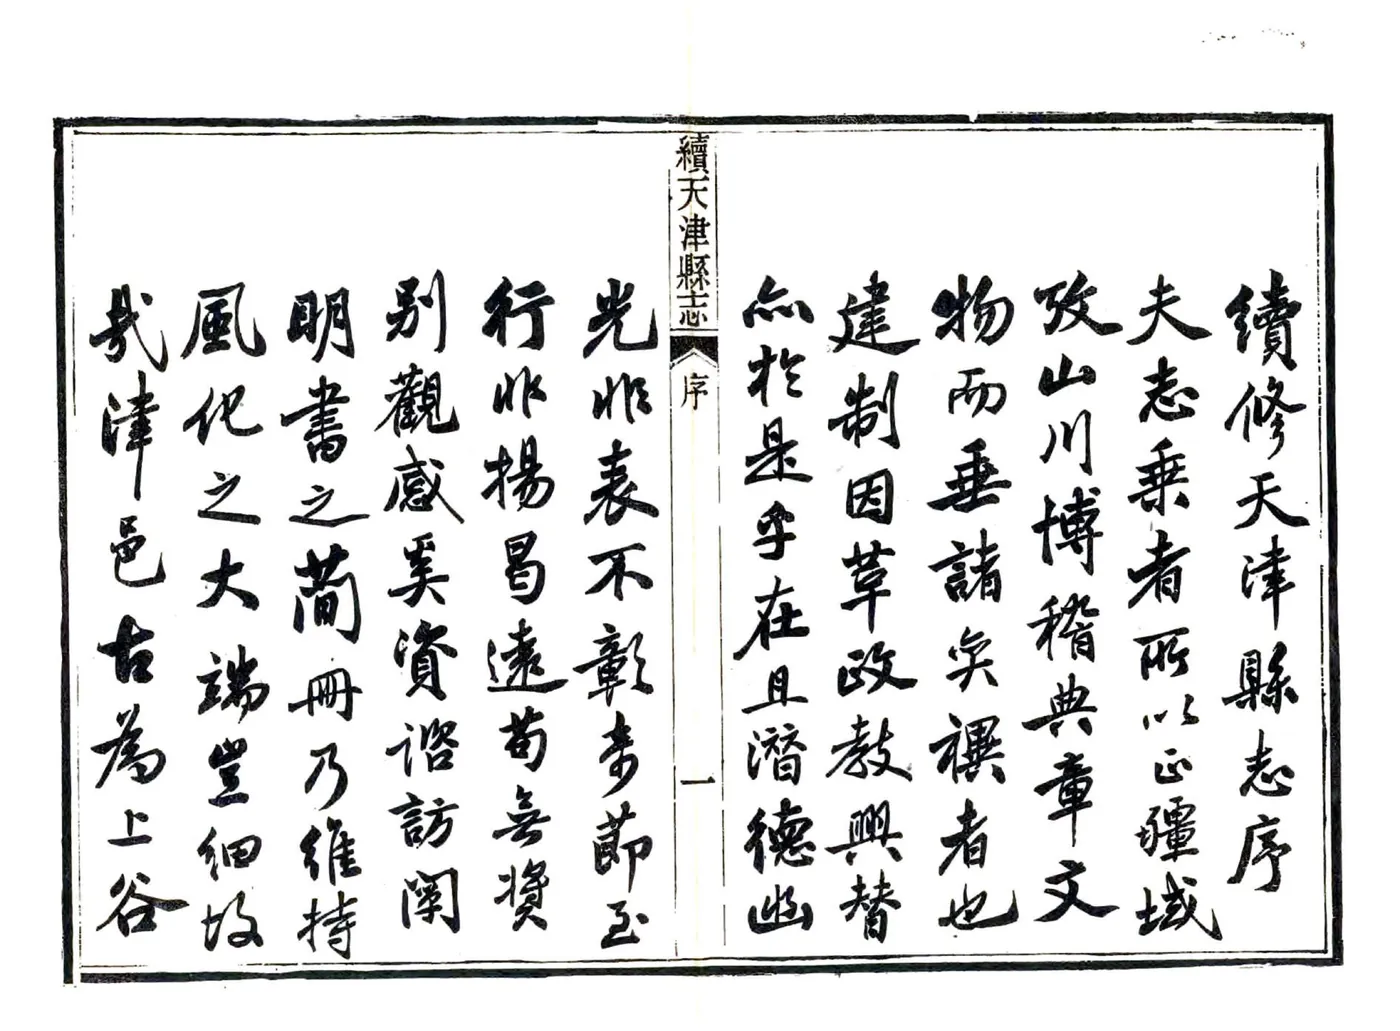 續修天津縣志序
夫志乘者所以正疆域
攷山川博稽典章文
物而垂諸奕禩者也
建制因革政教興替
亦於是乎在且潛德幽
續天津縣志
序
一
光非表不彰奇節至
行非揚曷遠苟無獎
別觀感奚資諮訪闡
明書之簡冊乃維持
風化之大端豈細故
哉津邑古為上谷